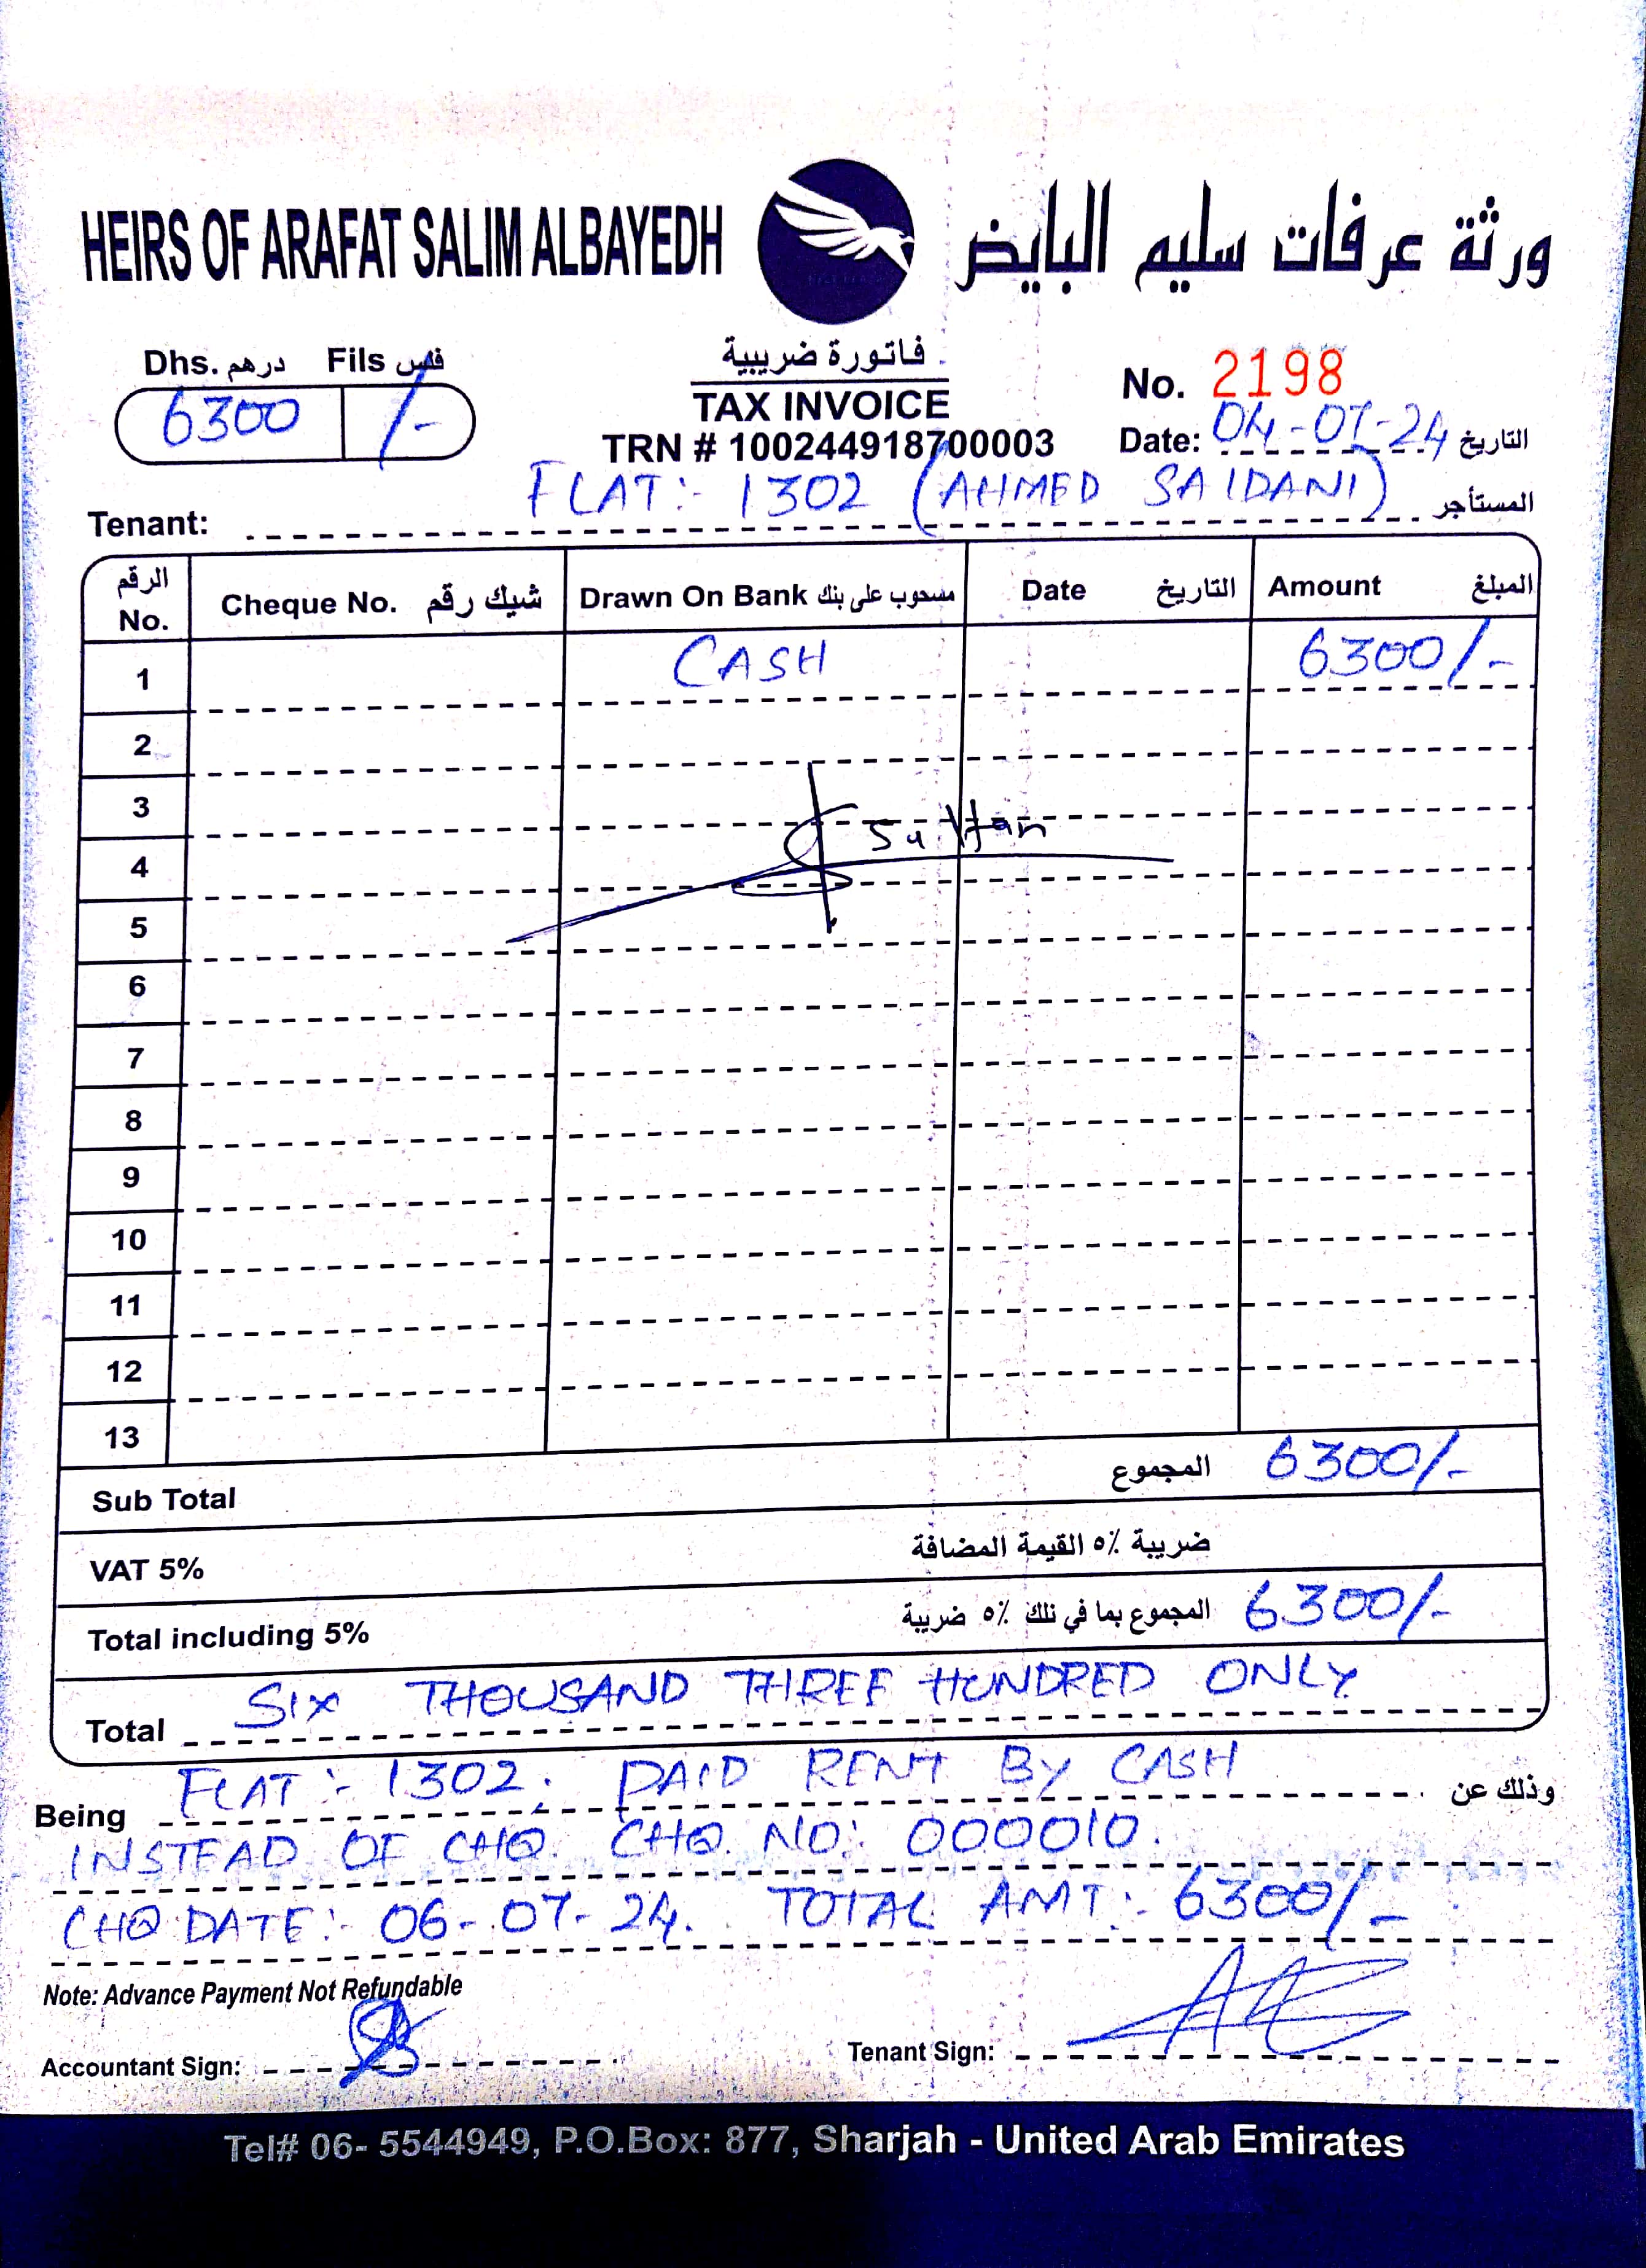 HEIRS OF ARAFAT SALIM ALBAYEDH
ورثة عرفات سليم البايض
Dhs. درهم Fils فلس
6300 /-
فاتورة ضريبية
TAX INVOICE
TRN # 100244918700003
No. 2198
Date: 04-07-24 التاريخ
Tenant: FLAT:- 1302 (AHMED SAIDANI) المستأجر
الرقم No. Cheque No. شيك رقم Drawn On Bank مسحوب على بنك Date التاريخ Amount المبلغ
1 CASH 6300/-
2
3
4 Sultan
5
6
7
8
9
10
11
12
13
Sub Total المجموع 6300/-
VAT 5% ضريبة ٥٪ القيمة المضافة
Total including 5% المجموع بما في ذلك ٥٪ ضريبة 6300/-
Total SIX THOUSAND THREE HUNDRED ONLY
Being FLAT:- 1302, PAID RENT BY CASH وذلك عن
INSTEAD OF CHQ. CHQ. NO: 000010.
CHQ DATE:- 06-07-24. TOTAL AMT:- 6300/-
Note: Advance Payment Not Refundable
Accountant Sign: Tenant Sign:
Tel# 06- 5544949, P.O.Box: 877, Sharjah - United Arab Emirates